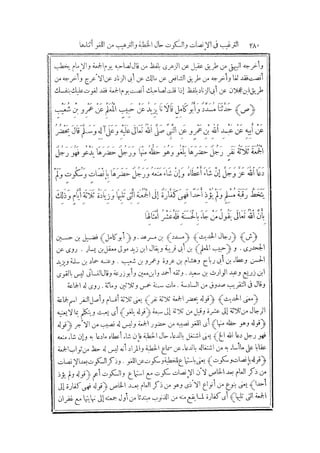 ٢٨٠ الترغيب فى الإنصات والسكوت حال الخطبة والترهيب من اللغو أثناءها
وأخرجه البيهقى من طريق عقيل عن الزهرى بلفظ من قال لصاحبه يوم الجمعة والإمام يخطب
أنصت فقد لغا وأخرجه من طريق الشافعى عن مالك عن أبى الزناد عن الأعرج وأخرجه من
طريق ابن عجلان عن أبى الزناد بلفظ إذا قلت لصاحبك أنصت يوم الجمعة فقد لغوت عليك بنفسك
﴿ص﴾ حَدَّثَنَا مُسَدَّدٌ وَأَبُو كَامِلٍ قَالَا نَا يَزِيدُ عَنْ حَبِيبٍ الْمُعَلِّمِ عَنْ عَمْرِو بْنِ شُعَيْبٍ
عَنْ أَبِيهِ عَنْ عَبْدِ اللهِ بْنِ عَمْرٍو عَنِ النَّبِيِّ صَلَّى اللهُ تَعَالَى عَلَيْهِ وَعَلَى آلِهِ وَسَلَّمَ قَالَ يَحْضُرُ
الْجُمُعَةَ ثَلَاثَةُ نَفَرٍ رَجُلٌ حَضَرَهَا يَلْغُو وَهُوَ حَظُّهُ مِنْهَا وَرَجُلٌ حَضَرَهَا يَدْعُو فَهُوَ رَجُلٌ
دَعَا اللهَ عَزَّ وَجَلَّ إِنْ شَاءَ أَعْطَاهُ وَإِنْ شَاءَ مَنَعَهُ وَرَجُلٌ حَضَرَهَا بِإِنْصَاتٍ وَسُكُوتٍ وَلَمْ
يَتَخَطَّ رَقَبَةَ مُسْلِمٍ وَلَمْ يُؤْذِ أَحَدًا فَهِيَ كَفَّارَةٌ إِلَى الْجُمُعَةِ الَّتِي تَلِيهَا وَزِيَادَةُ ثَلَاثَةِ أَيَّامٍ وَذٰلِكَ
بِأَنَّ اللهَ تَعَالَى يَقُولُ مَنْ جَاءَ بِالْحَسَنَةِ فَلَهُ عَشْرُ أَمْثَالِهَا
﴿ش﴾ ﴿رجال الحديث﴾ ﴿مسدد﴾ بن مسرهد. و ﴿أبو كامل﴾ فضيل بن حسين
الجحدرى. و ﴿حبيب المعلم﴾ بن أبى قريبة ويقال ابن زيد مولى معقل بن يسار. روى عن
الحسن وعطاء بن أبى رباح وهشام بن عروة وعمرو بن شعيب. وعنه حماد بن سلمة ويزيد
ابن زريع وعبد الوارث بن سعيد. وثقه أحمد وابن معين وأبو زرعة وقال النسائى ليس بالقوى
وقال فى التقريب صدوق من السادسة. مات سنة خمس وثلاثين ومائة. روى له الجماعة
﴿معنى الحديث﴾ ﴿قوله يحضر الجمعة ثلاثة نفر﴾ يعنى ثلاثة أقسام وأصل النفر اسم لجماعة
الرجال من ثلاثة إلى عشرة وقيل من ثلاثة إلى سبعة ﴿قوله يلغو﴾ أى يعبث ويتكلم بما لا يعنيه
﴿قوله وهو حظه منها﴾ أى اللغو نصيبه من حضور الجمعة وليس له نصيب من الأجر ﴿قوله
فهو رجل دعا الله الخ﴾ يعنى اشتغل بالدعاء حال الخطبة فإن شاء أعطاه مادعا به وإن شاء منعه
عقابا على ما أساء به من اشتغاله بالدعاء عن سماع الخطبة والمراد أنه ليس له حظ من ثواب الجمعة
﴿قوله بإنصات وسكوت﴾ يعنى باستماع للخطبة وسكوت عن اللغو. وذكر السكوت بعد الإنصات
من ذكر العام بعد الخاص لأن الإنصات سكوت مع استماع والسكوت أعم ﴿قوله ولم يؤذ
أحدا﴾ يعنى بنوع من أنواع الأذى وهو من ذكر العام بعد الخاص ﴿قوله فهى كفارة إلى
الجمعة التى تليها﴾ أى كفارة لما يقع منه من الذنوب مبتدئا من أول جمعته إلى نهايتها مع غفران